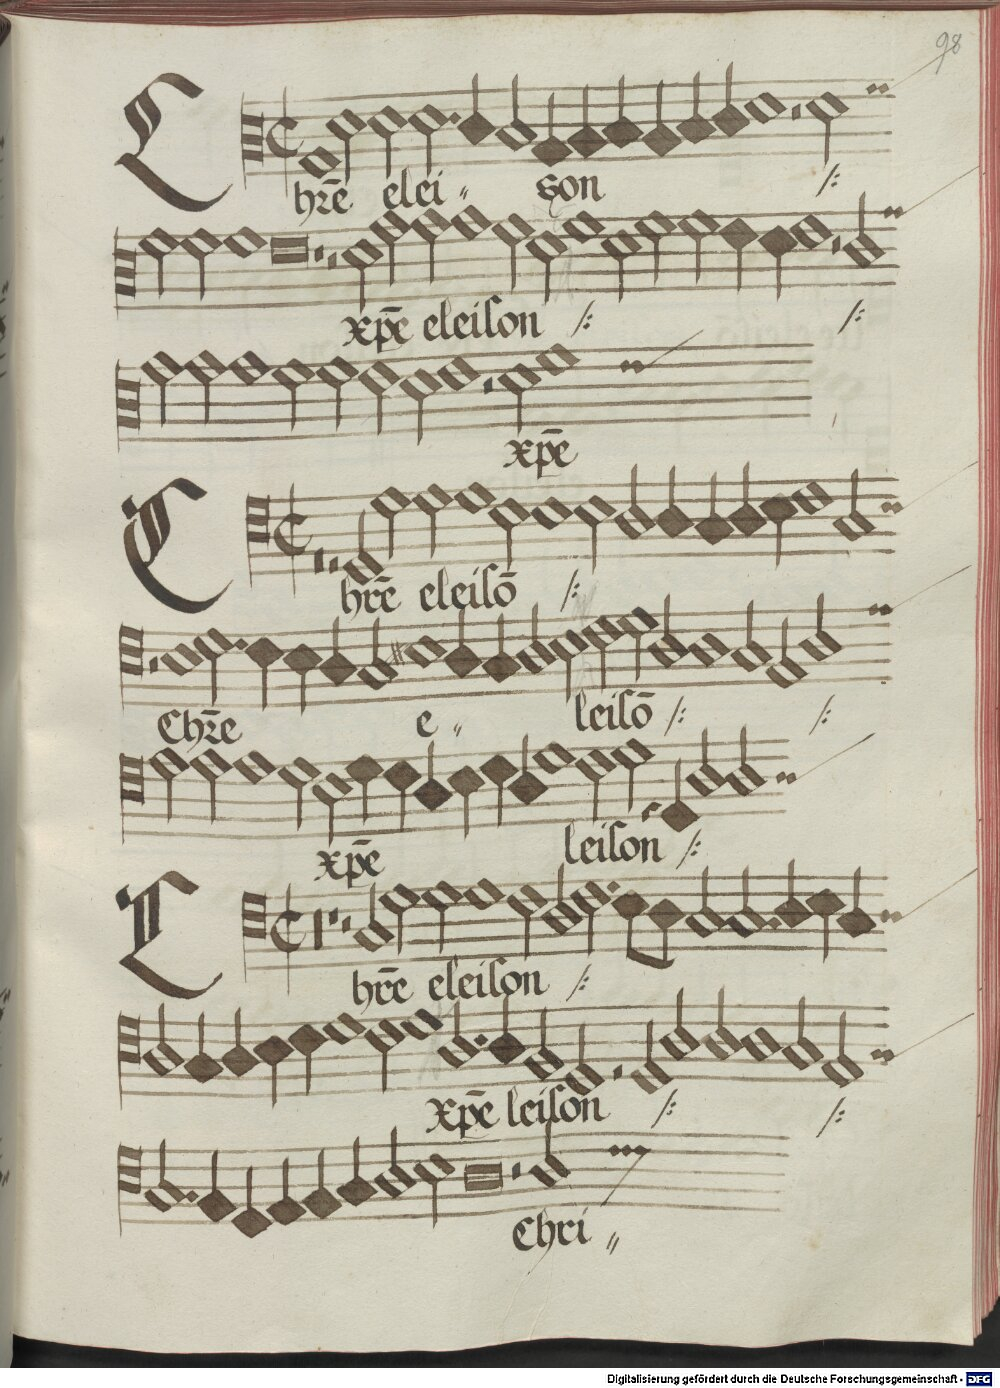 98
Chr̄e elei〃 son /:
xp̄e eleiſon /: /:
xp̄e
Chr̄e eleiſō /:
Chr̄e e〃 leiſō /: /:
xp̄e leiſon /:
Chr̄e eleiſon /:
xp̄e leiſon /: /:
Chri〃
Digitalisierung gefördert durch die Deutsche Forschungsgemeinschaft - DFG